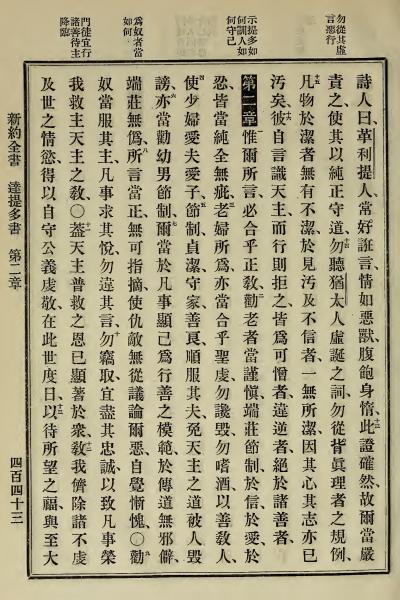 勿從其虛
言惡行
示提多如
何訓人如
何守己
為奴者當
如何
門徒宜行
諸善待主
降臨
詩人曰、革利提人、常好誑言、情如惡獸、腹飽身惰、此證確然、故爾當嚴
責之、使其以純正守道、勿聽猶太人虛誕之詞、勿從背眞理者之規例、
凡物於潔者無有不潔、於見汚及不信者、一無所潔、因其心其志亦已
汚矣、彼自言識天主、而行則拒之、皆爲可憎者、違逆者、絕於諸善者、
第二章 惟爾所言、必合乎正敎、勸老者當謹愼端莊節制、於信於愛於
忍、皆當純全無疵、老婦所爲、亦當合乎聖虔、勿讒毀、勿嗜酒、以善敎人、
使少婦愛夫愛子、節制貞潔、守家善良、順服其夫、免天主之道被人毀
謗、亦當勸幼男節制、爾當於凡事顯己爲行善之模範、於傳道無邪僻、
端莊無僞、所言當正、無可指摘、使仇敵無從議論爾惡、自覺慚愧、○勸
奴當服其主、凡事求其悅、勿違其言、勿竊取、宜盡其忠誠、以致凡事榮
我救主天主之敎、○蓋天主普救之恩、已顯著於衆、敎我儕除諸不虔
及世之情慾、得以自守公義虔敬、在此世度日、以待所望之福、與至大
新約全書 達提多書 第二章 四百四十三